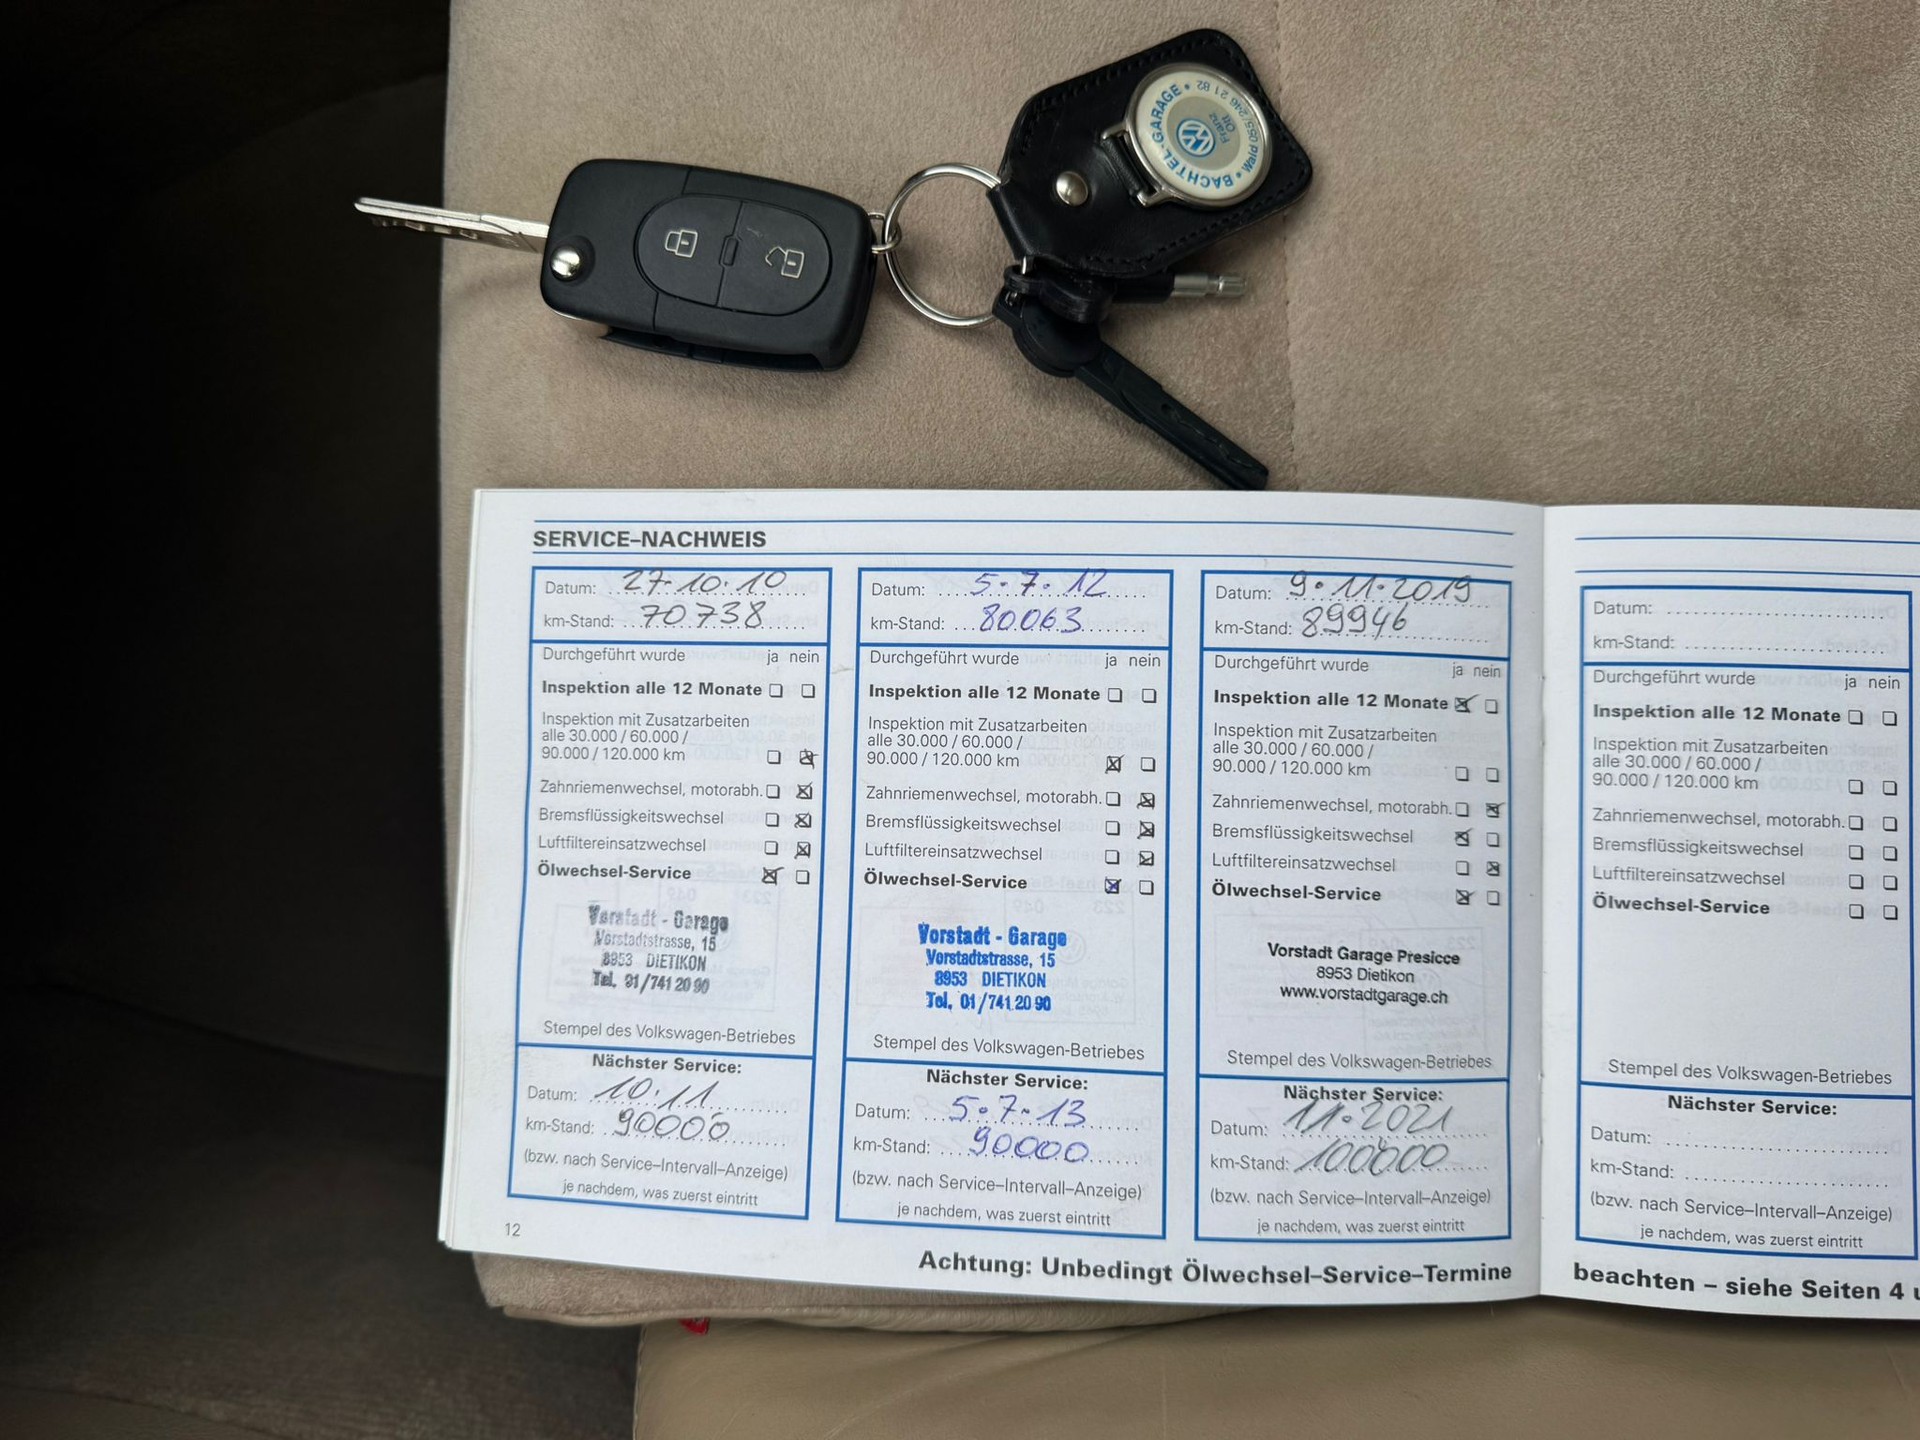 BACHTEL-GARAGE • Wald 055/246 21 82 •
Franz
Ott
SERVICE–NACHWEIS
Datum: 27.10.10
km-Stand: 70738
Durchgeführt wurde ja nein
Inspektion alle 12 Monate
Inspektion mit Zusatzarbeiten
alle 30.000 / 60.000 /
90.000 / 120.000 km
Zahnriemenwechsel, motorabh.
Bremsflüssigkeitswechsel
Luftfiltereinsatzwechsel
Ölwechsel-Service
Vorstadt - Garage
Vorstadtstrasse, 15
8953 DIETIKON
Tel. 01/741 20 90
Stempel des Volkswagen-Betriebes
Nächster Service:
Datum: 10.11
km-Stand: 90000
(bzw. nach Service–Intervall–Anzeige)
je nachdem, was zuerst eintritt
12
Datum: 5.7.12
km-Stand: 80063
Durchgeführt wurde ja nein
Inspektion alle 12 Monate
Inspektion mit Zusatzarbeiten
alle 30.000 / 60.000 /
90.000 / 120.000 km
Zahnriemenwechsel, motorabh.
Bremsflüssigkeitswechsel
Luftfiltereinsatzwechsel
Ölwechsel-Service
Vorstadt - Garage
Vorstadtstrasse, 15
8953 DIETIKON
Tel. 01/741 20 90
Stempel des Volkswagen-Betriebes
Nächster Service:
Datum: 5.7.13
km-Stand: 90000
(bzw. nach Service–Intervall–Anzeige)
je nachdem, was zuerst eintritt
Datum: 9.11.2019
km-Stand: 89946
Durchgeführt wurde ja nein
Inspektion alle 12 Monate
Inspektion mit Zusatzarbeiten
alle 30.000 / 60.000 /
90.000 / 120.000 km
Zahnriemenwechsel, motorabh.
Bremsflüssigkeitswechsel
Luftfiltereinsatzwechsel
Ölwechsel-Service
Vorstadt Garage Presicce
8953 Dietikon
www.vorstadtgarage.ch
Stempel des Volkswagen-Betriebes
Nächster Service:
Datum: 11.2021
km-Stand: 100000
(bzw. nach Service–Intervall–Anzeige)
je nachdem, was zuerst eintritt
Achtung: Unbedingt Ölwechsel–Service–Termine
Datum:
km-Stand:
Durchgeführt wurde ja nein
Inspektion alle 12 Monate
Inspektion mit Zusatzarbeiten
alle 30.000 / 60.000 /
90.000 / 120.000 km
Zahnriemenwechsel, motorabh.
Bremsflüssigkeitswechsel
Luftfiltereinsatzwechsel
Ölwechsel-Service
Stempel des Volkswagen-Betriebes
Nächster Service:
Datum:
km-Stand:
(bzw. nach Service–Intervall–Anzeige)
je nachdem, was zuerst eintritt
beachten – siehe Seiten 4